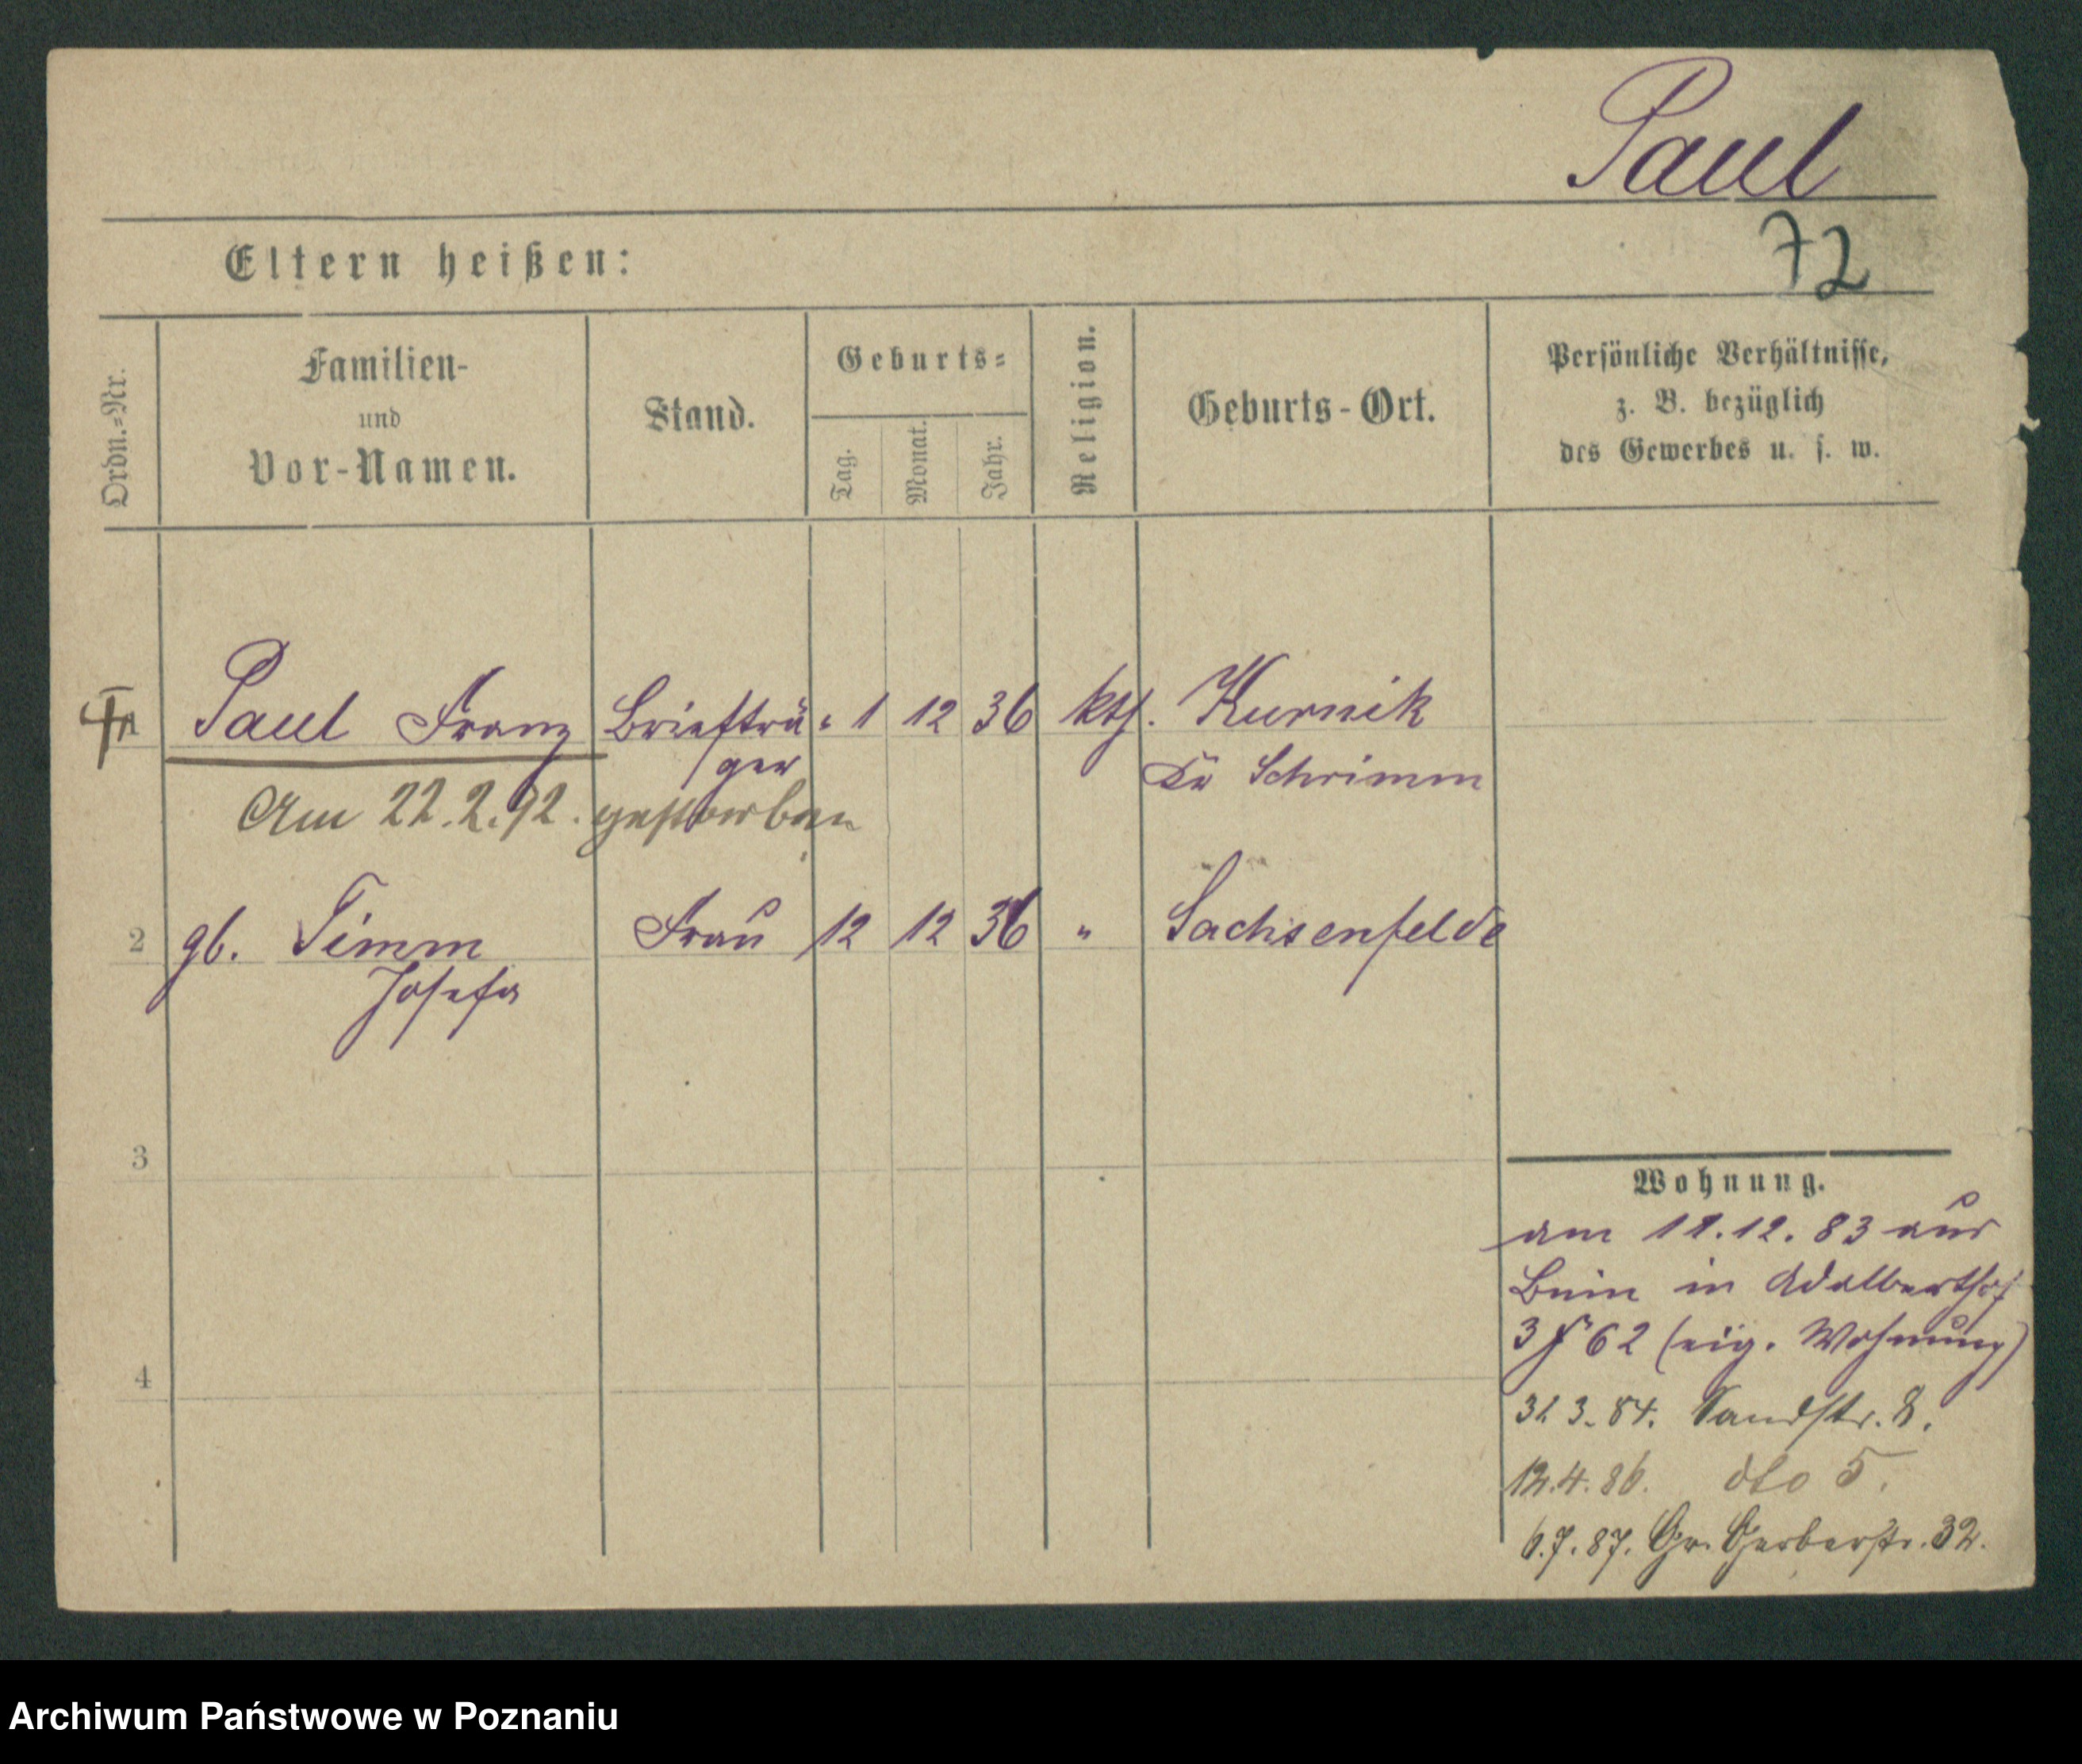 Paul
72
Eltern heißen:
Ordn.-Nr.
Familien-
und
Vor-Namen.
Stand.
Geburts-
Tag.
Monat.
Jahr.
Religion.
Geburts-Ort.
Persönliche Verhältnisse,
z. B. bezüglich
des Gewerbes u. s. w.
Paul Franz Briefträ- 1 12 36 kth. Kurnik
ger Kr Schrimm
Am 22.2.92. gestorben
2 gb. Timm Frau 12 12 36 " Sachsenfelde
Josefa
3
4
Wohnung.
am 11.12.83 aus
Bnin in Adalbertstr
3 62 (eig. Wohnung)
31 3. 84. Sandstr. 8.
12.4.86. dto 5.
6.7.87. Gr. Gerberstr. 32.
Archiwum Państwowe w Poznaniu